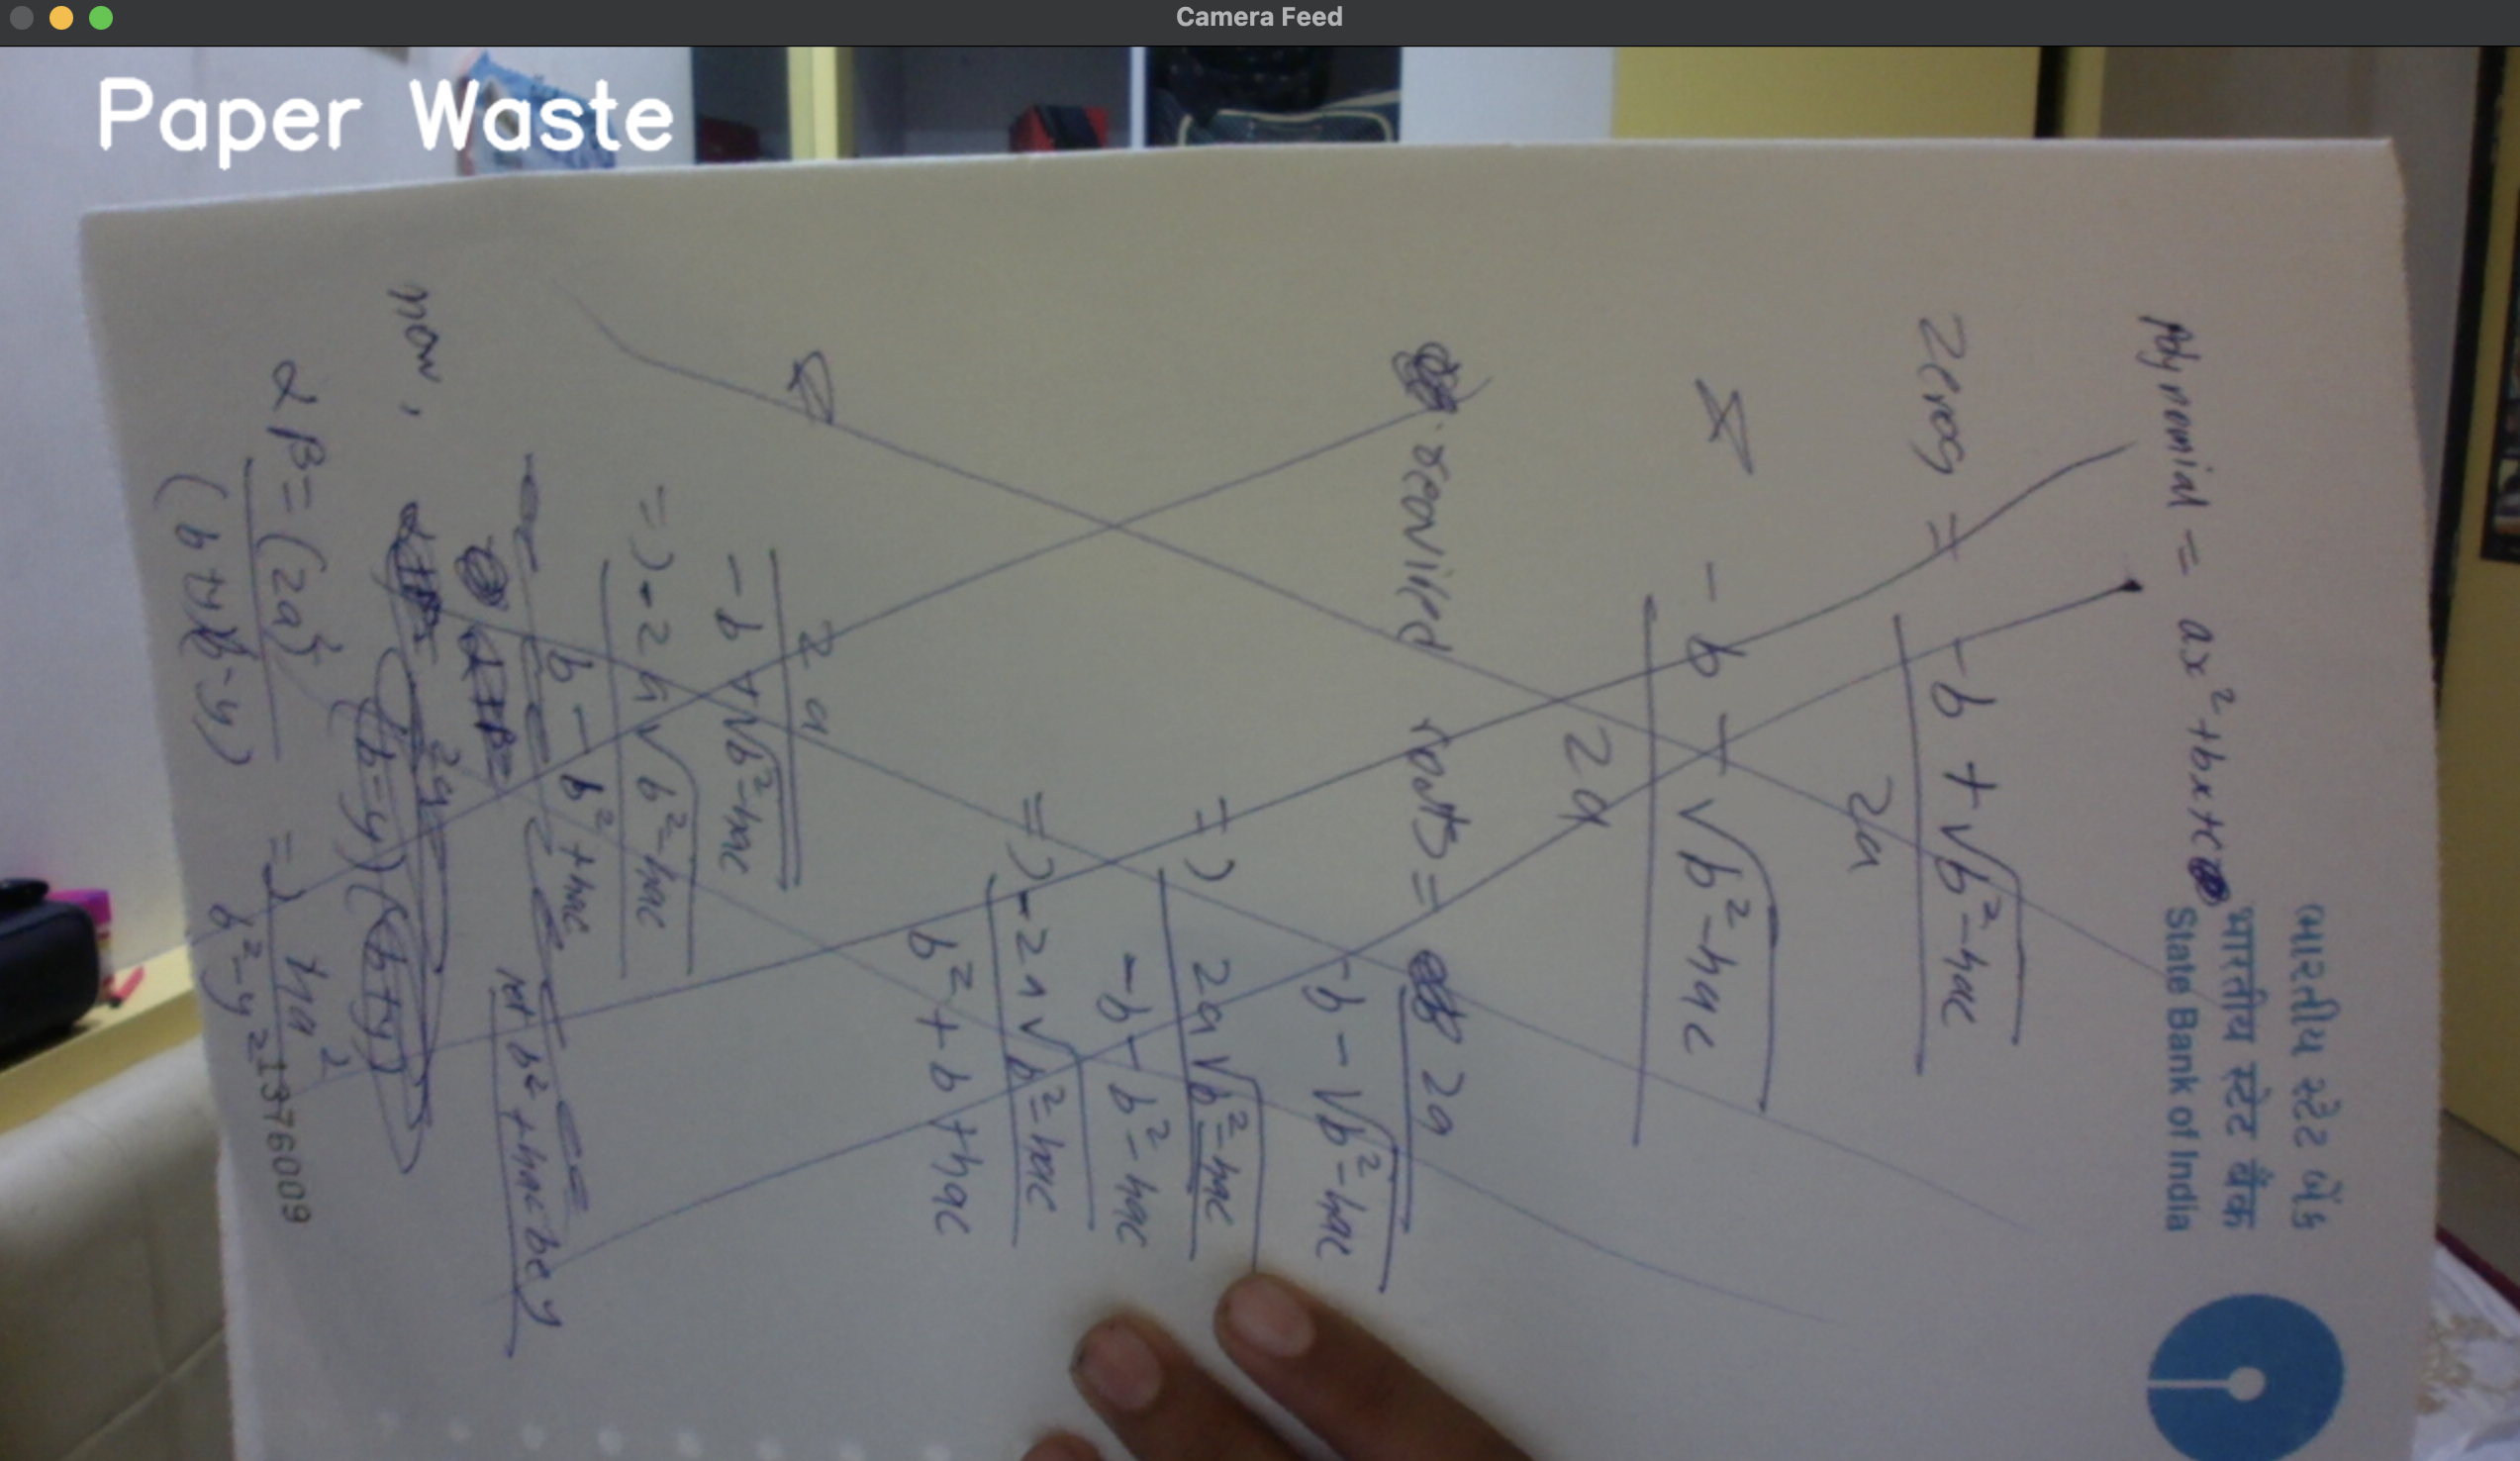 Camera Feed
Paper Waste
ભારતીય સ્ટેટ બેંક
भारतीय स्टेट बैंक
State Bank of India
Polynomial = ax²+bx+c
zeros = -b + √b²-4ac
2a
& -b - √b²-4ac
2a
required roots = 2a
-b - √b²-4ac
=) 2a√b²-4ac
-b - b²-4ac
=) -2a√b²-4ac
b² + b + 4ac
& 2a
-b + √b²-4ac
=) -2a√b²-4ac
b - b² + 4ac
let b² + 4ac be y
now,
2a
(b-y) (b+y)
αβ = (2a)² =) 4a²
(b+y)(b-y) b²-y²
1376009